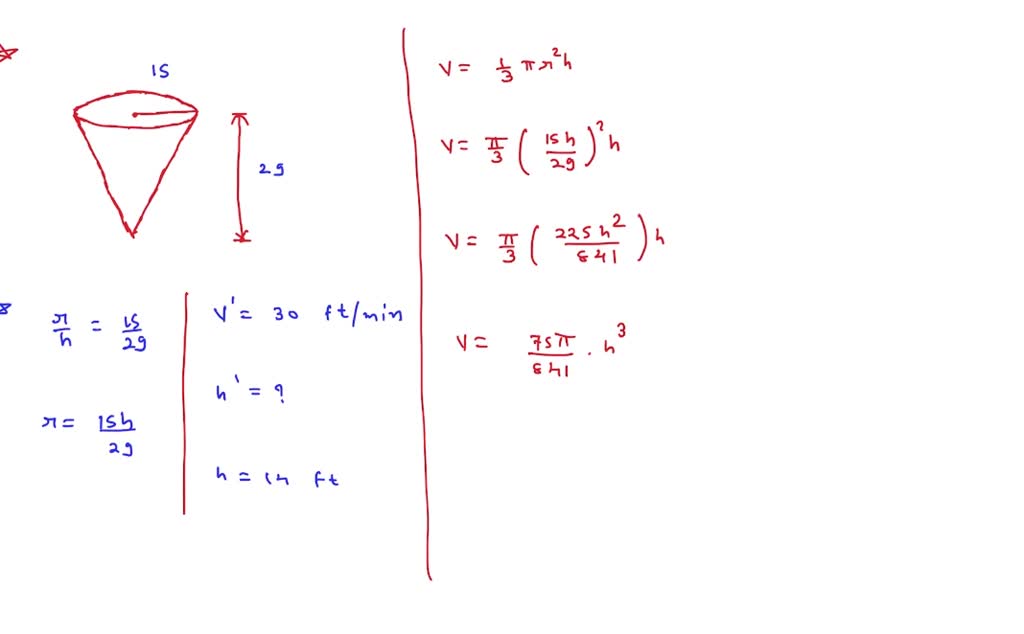 15
29
r/h = 15/29
r = 15h/29
V' = 30 ft/min
h' = ?
h = 14 ft
V = 1/3 π r²h
V = π/3 (15h/29)² h
V = π/3 (225h²/841) h
V = 75π/841 . h³